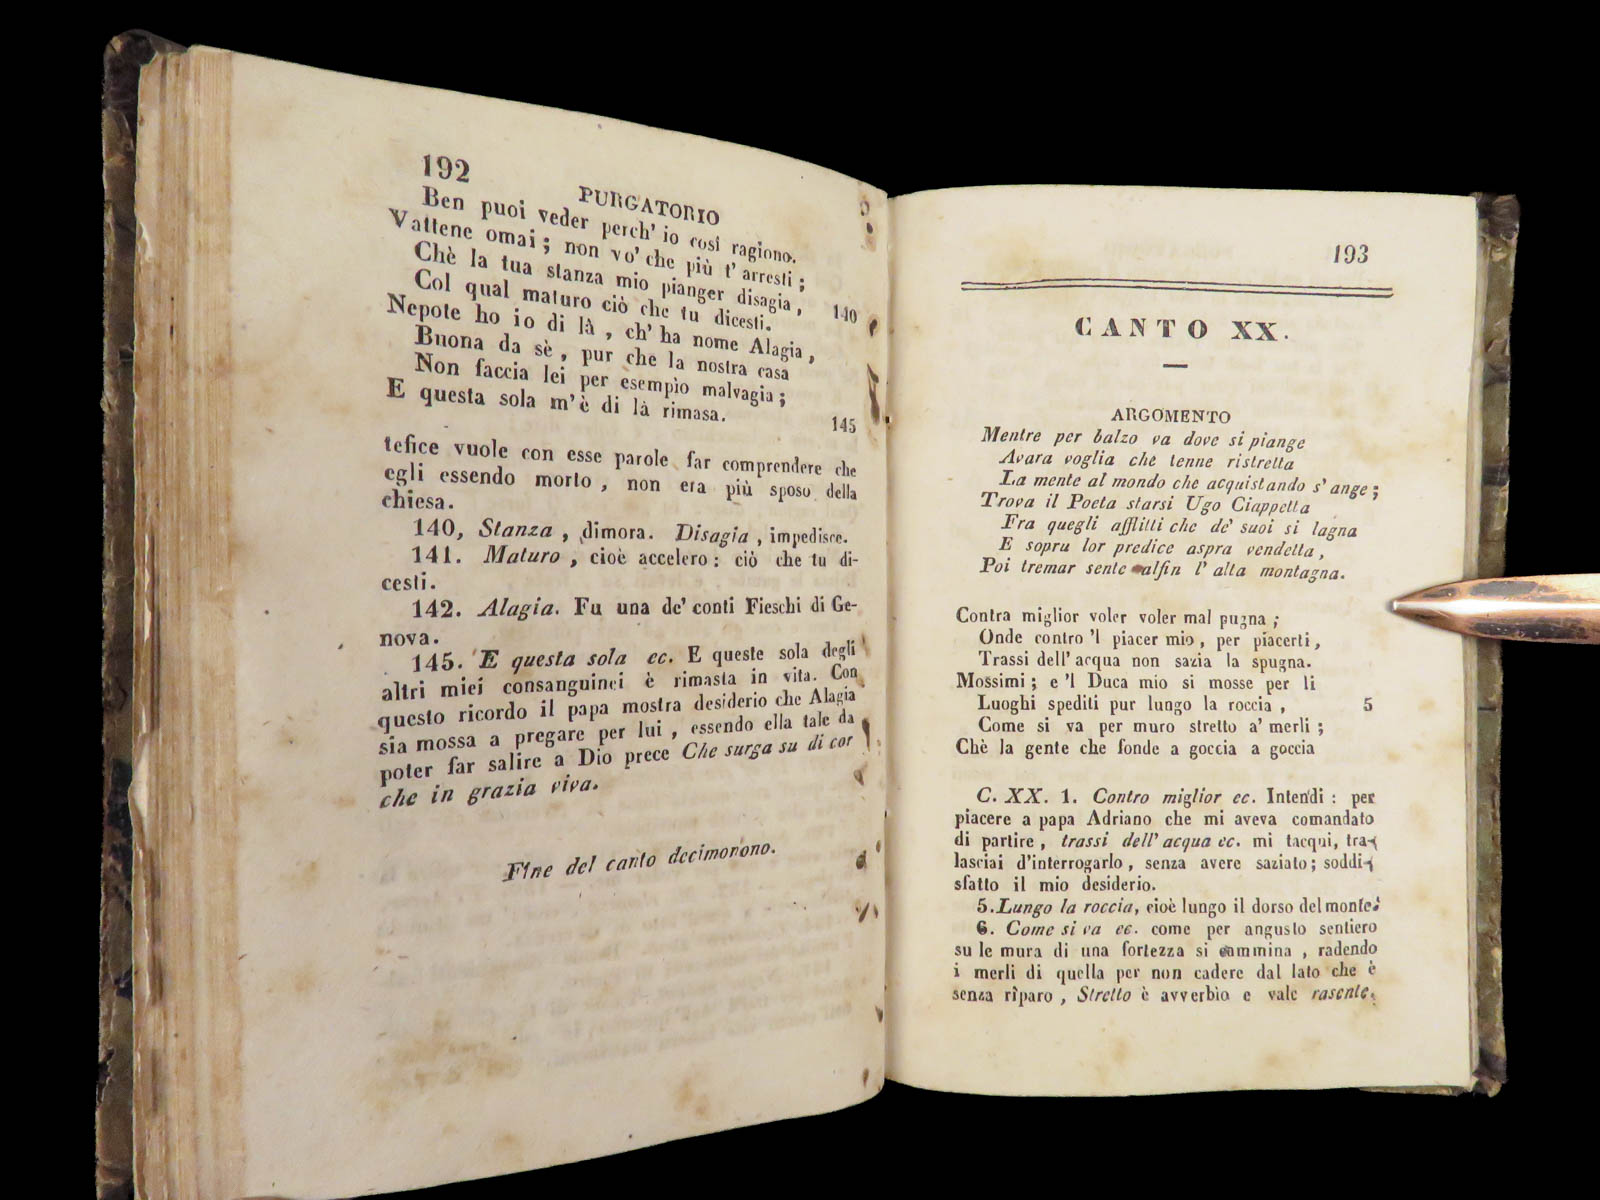 192
PURGATORIO
Ben puoi veder perch' io così ragiono.
Vattene omai; non vo' che più t' arresti;
Chè la tua stanza mio pianger disagia,
Col qual maturo ciò che tu dicesti.
140
Nepote ho io di là, ch' ha nome Alagia,
Buona da sè, pur che la nostra casa
Non faccia lei per esempìo malvagia;
E questa sola m'è di là rimasa.
145
tefice vuole con esse parole far comprendere che
egli essendo morto, non era più sposo della
chiesa.
140, Stanza, dimora. Disagia, impedisce.
141. Maturo, cioè accelero: ciò che tu di-
cesti.
142. Alagia. Fu una de' conti Fieschi di Ge-
nova.
145. E questa sola ec. E queste sola degli
altri miei consanguinei è rimasta in vita. Con
questo ricordo il papa mostra desiderio che Alagia
sia mossa a pregare per lui, essendo ella tale da
poter far salire a Dio prece Che surga su di cor
che in grazia viva.
Fine del canto decimonono.
193
CANTO XX.
ARGOMENTO
Mentre per balzo va dove si piange
Avara voglia che tenne ristretta
La mente al mondo che acquistando s' ange;
Trova il Poeta starsi Ugo Ciappetta
Fra quegli afflitti che de' suoi si lagna
E sopru lor predice aspra vendetta,
Poi tremar sente alfin l' alta montagna.
Contra miglior voler voler mal pugna;
Onde contro 'l piacer mio, per piacerti,
Trassi dell' acqua non sazia la spugna.
Mossimi; e 'l Duca mio si mosse per li
Luoghi spediti pur lungo la roccia,
5
Come si va per muro stretto a' merli;
Chè la gente che fonde a goccia a goccia
C. XX. 1. Contro miglior ec. Intendi: per
piacere a papa Adriano che mi aveva comandato
di partire, trassi dell' acqua ec. mi tacqui, tra-
lasciai d'interrogarlo, senza avere saziato; soddi-
sfatto il mio desiderio.
5. Lungo la roccia, cioè lungo il dorso del monte.
6. Come si va ec. come per angusto sentiero
su le mura di una fortezza si cammina, radendo
i merli di quella per non cadere dal lato che è
senza rîparo, Stretto è avverbìo e vale rasente.